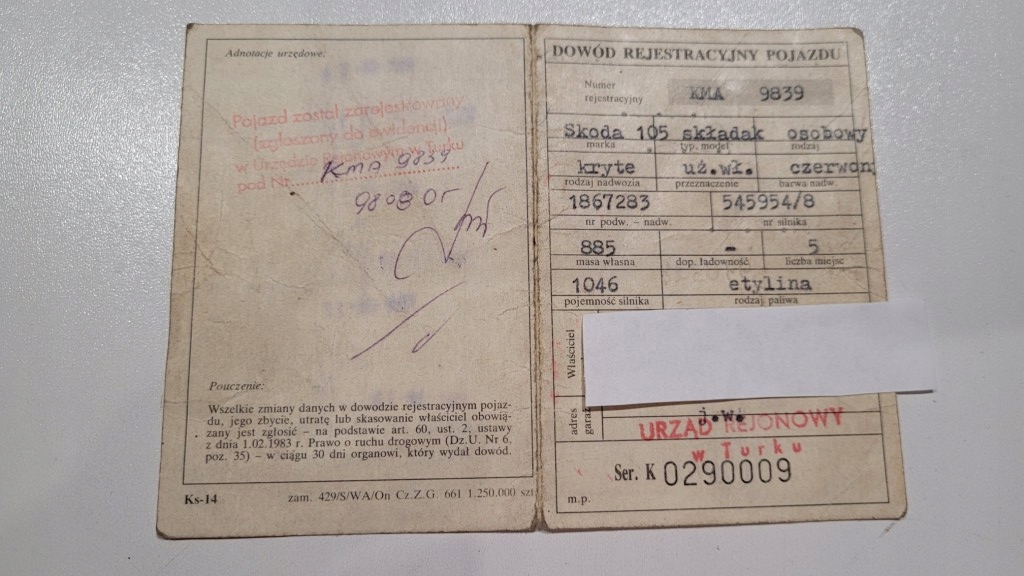 Adnotacje urzędowe:
Pojazd został zarejestrowany
(zgłoszony do ewidencji)
w Urzędzie Rejonowym w Turku
pod Nr KMA 9839
Pouczenie:
Wszelkie zmiany danych w dowodzie rejestracyjnym pojaz-
du, jego zbycie, utratę lub skasowanie właściciel obowią-
zany jest zgłosić – na podstawie art. 60, ust. 2, ustawy
z dnia 1.02.1983 r. Prawo o ruchu drogowym (Dz.U. Nr 6,
poz. 35) – w ciągu 30 dni organowi, który wydał dowód.
Ks-14 zam. 429/S/WA/On Cz.Z.G. 661 1.250.000 szt
DOWÓD REJESTRACYJNY POJAZDU
Numer
rejestracyjny KMA 9839
Skoda 105 składak osobowy
marka typ, model rodzaj
kryte uż.wł. czerwony
rodzaj nadwozia przeznaczenie barwa nadw.
1867283 545954/8
nr podw. – nadw. nr silnika
885 - 5
masa własna dop. ładowność liczba miejsc
1046 etylina
pojemność silnika rodzaj paliwa
Właściciel
adres
garaż
j.w.
URZĄD REJONOWY
w Turku
Ser. K 0290009
m.p.